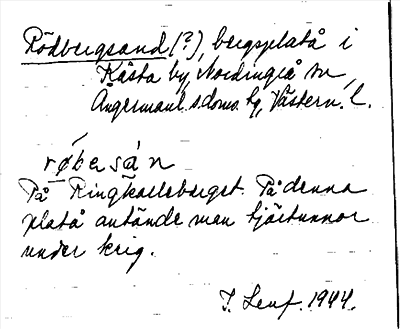 Rödbergsand (?), bergsplatå i
Kåsta by, Nordingrå sn,
Ångermanl. s. doms. hg, Västern. l.
røbesán
På Ringkalleberget. På denna
platå antände man tjärtunnor
under krig.
1944.